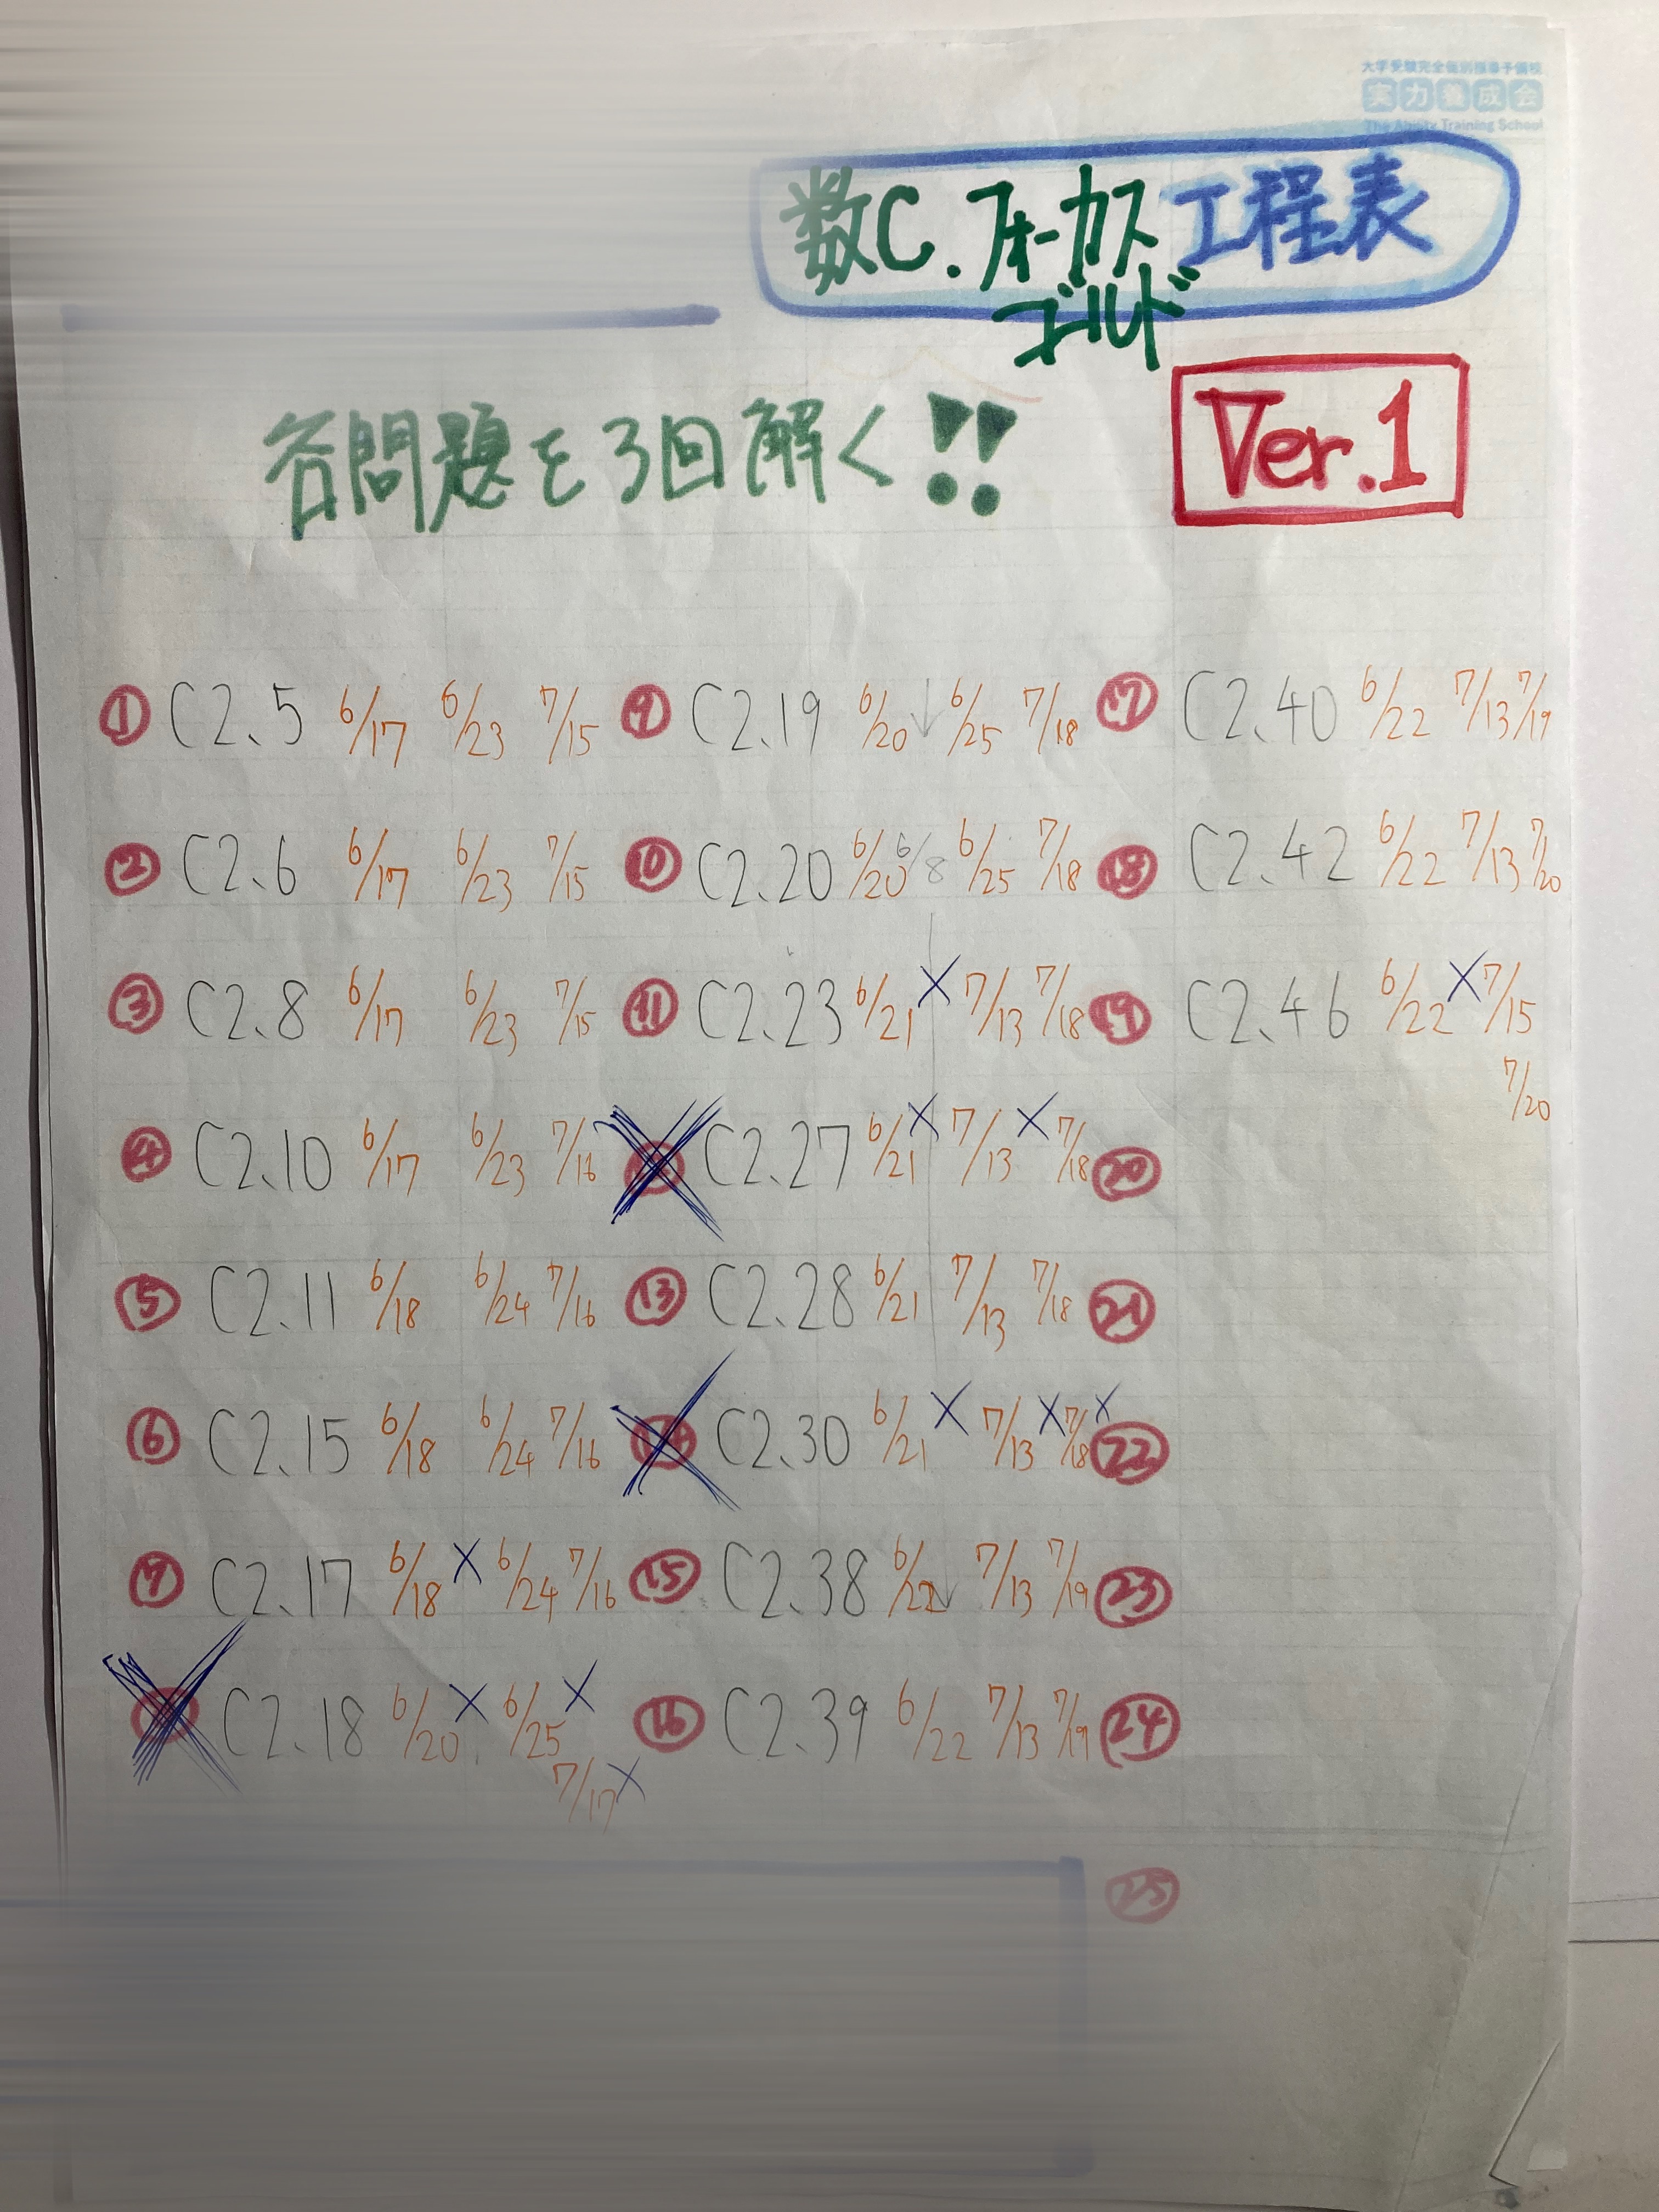 大学受験完全個別指導予備校
実力養成会
The Ability Training School
数C.フォーカス工程表
ゴールド
各問題を3回解く!!
Ver.1
① C2.5 6/17 6/23 7/15
② C2.6 6/17 6/23 7/15
③ C2.8 6/17 6/23 7/15
④ C2.10 6/17 6/23 7/16
⑤ C2.11 6/18 6/24 7/16
⑥ C2.15 6/18 6/24 7/16
⑦ C2.17 6/18 × 6/24 7/16
C2.18 6/20 × 6/25 ×
7/17 ×
⑨ C2.19 6/20 ↓ 6/25 7/18
⑩ C2.20 6/20 6/8 6/25 7/18
⑪ C2.23 6/21 × 7/13 7/18
C2.27 6/21 × 7/13 × 7/18
⑬ C2.28 6/21 7/13 7/18
C2.30 6/21 × 7/13 × 7/18 ×
⑮ C2.38 6/22 ↓ 7/13 7/19
⑯ C2.39 6/22 7/13 7/19
⑰ C2.40 6/22 7/13 7/19
⑱ C2.42 6/22 7/13 7/20
⑲ C2.46 6/22 × 7/15
7/20
⑳
㉑
㉒
㉓
㉔
㉕